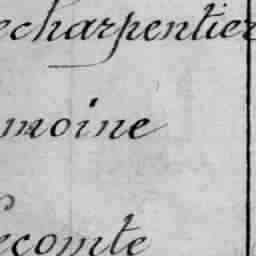 echarpentier
moine
ecomte